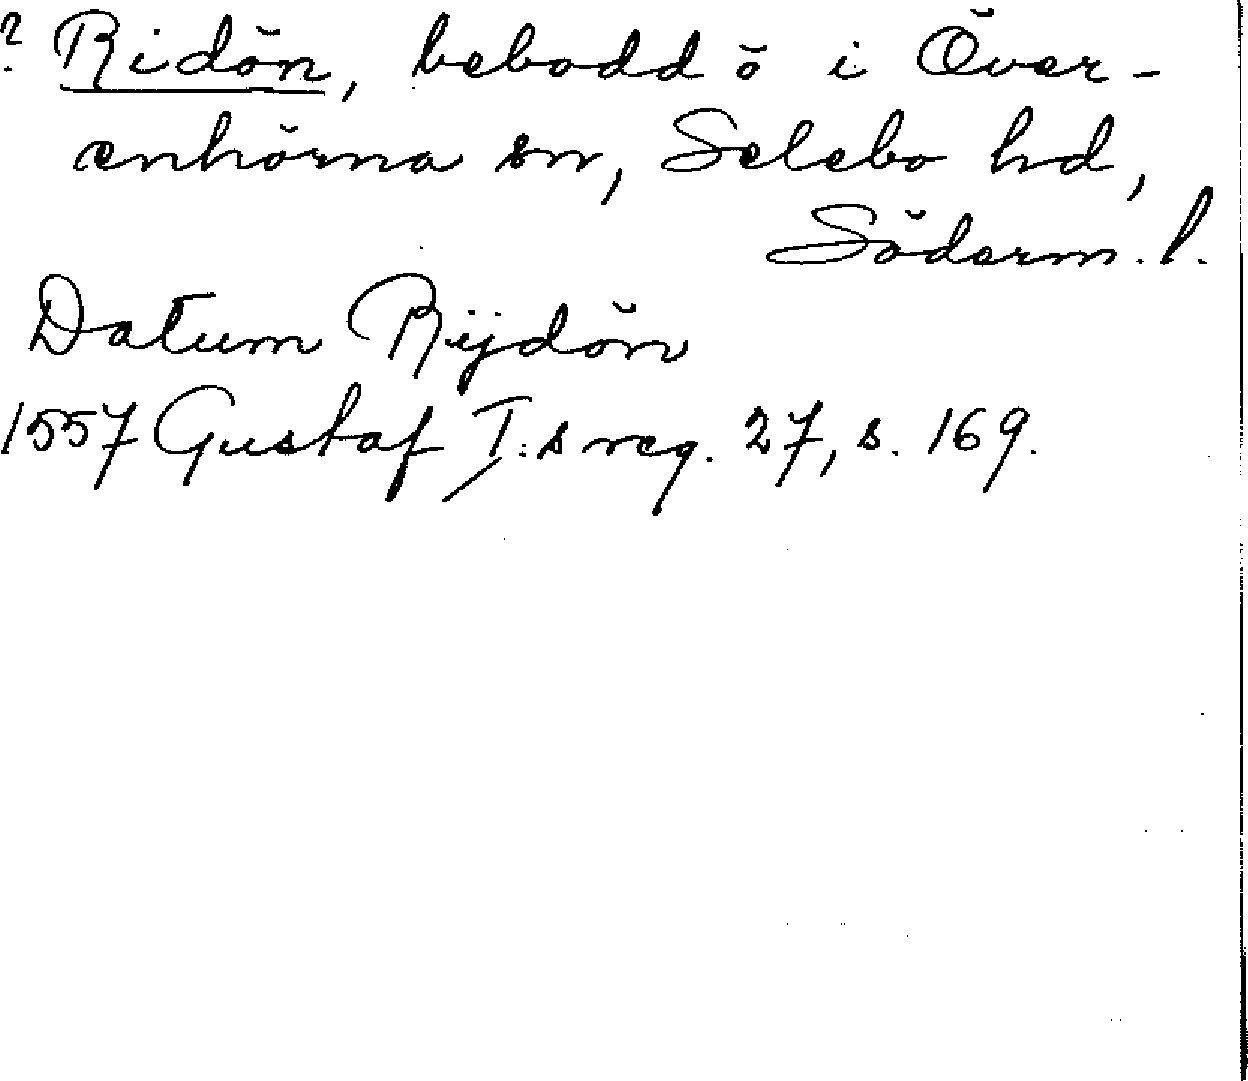 ? Ridön, bebodd ö i Över-
enhörna sn, Selebo hd,
Söderm. l.
Datum Rijdön
1557 Gustaf I:s reg. 27, s. 169.